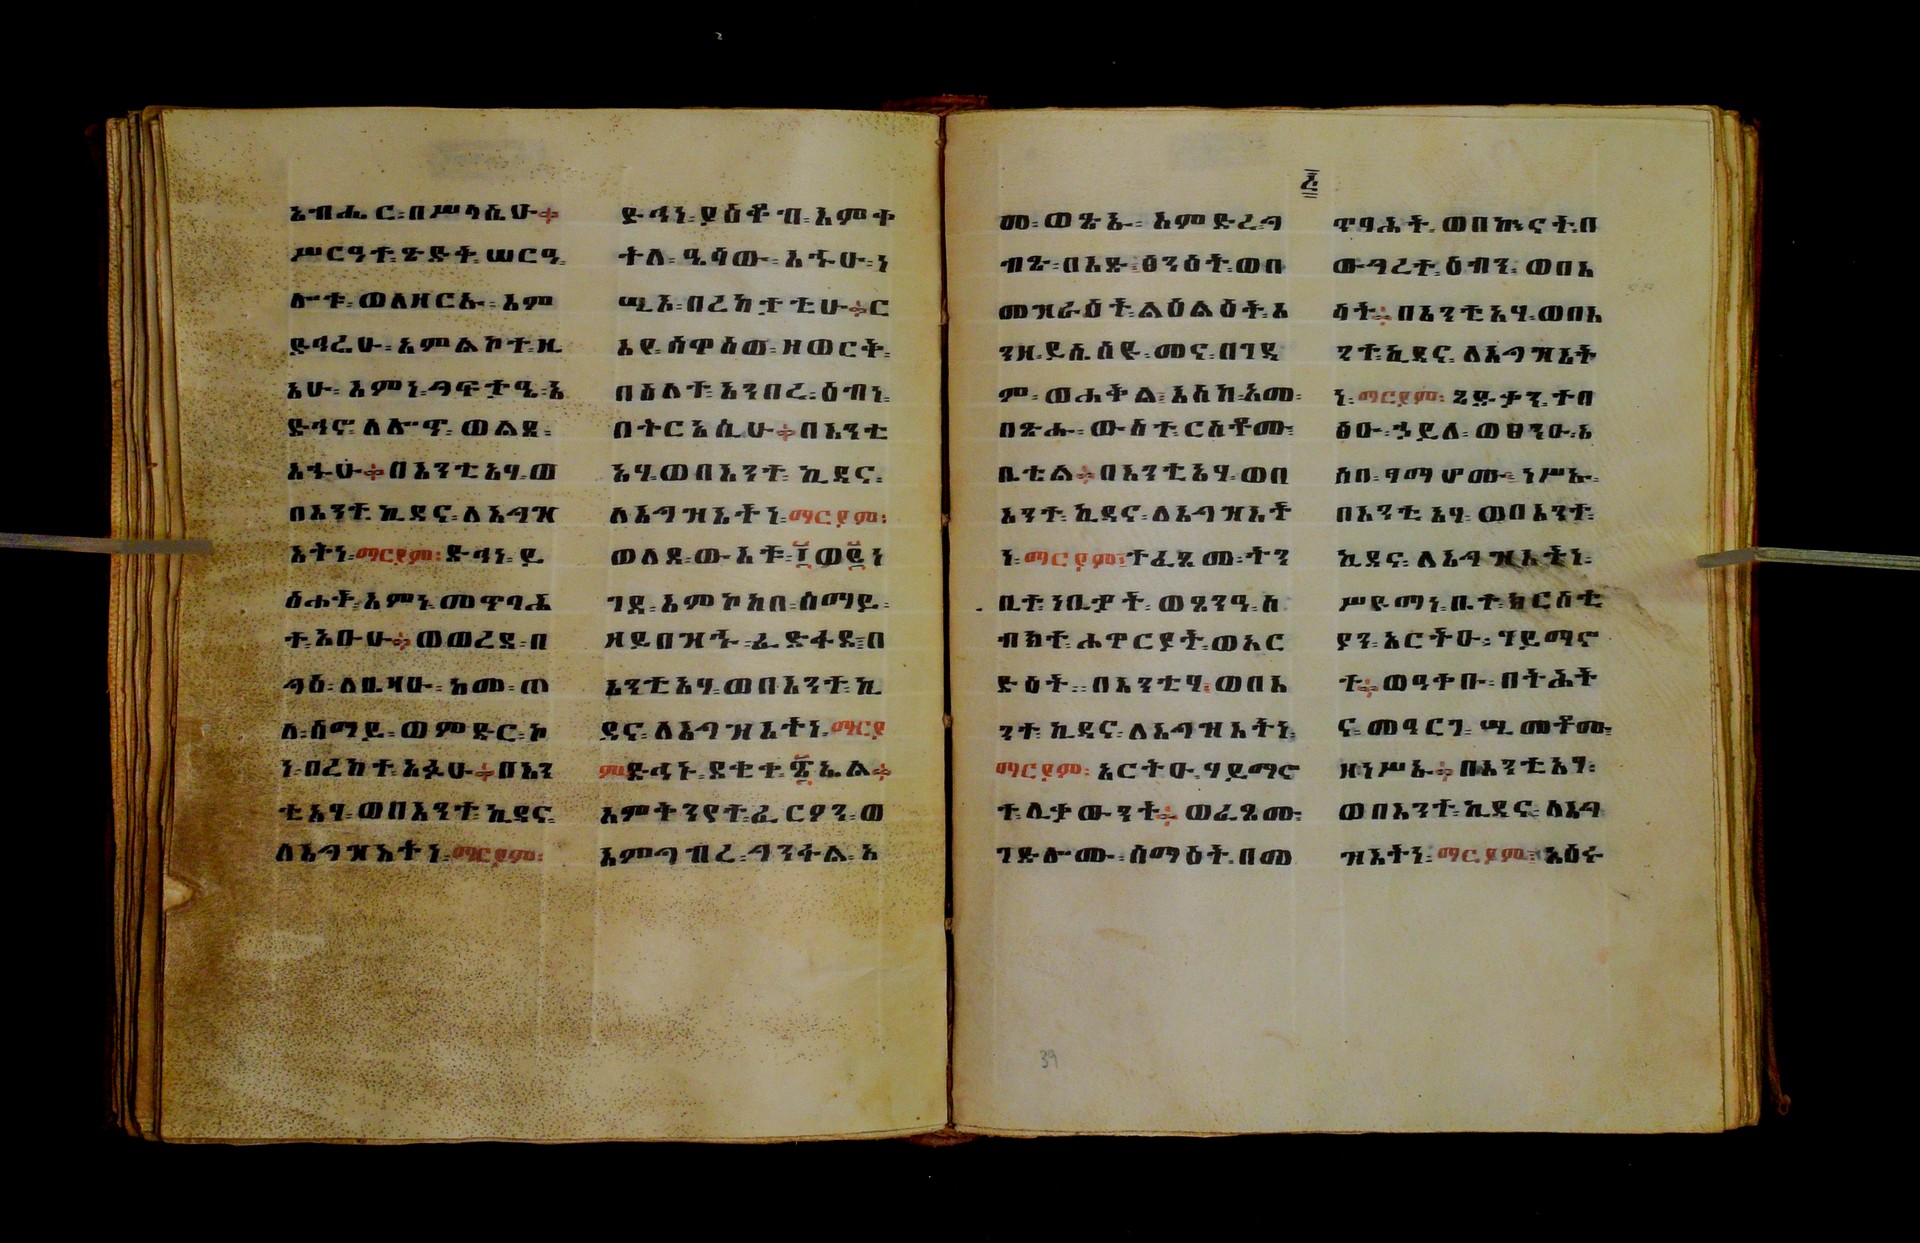 እብሔር፡በሥላሴሁ፨
ሥርዓተ፡ጽድቅ፡ሠርዓ፡
ሎቱ፡ወለዘርኡ፡እም
ድኅሬሁ፡እምልኮተ፡ዚ
አሁ፡እምነ፡ጣፍታዒ፡አ
ድኅኖ፡ለሎጥ፡ወልደ፡
እኁሁ፨በእንቲአሃ፡ወ
በእንተ፡ኪዳና፡ለእግዝ
እትነ፡ማርያም፡ድኅነ፡ይ
ስሐቅ፡እምነ፡መጥባሕ
ተ፡አቡሁ፨ወወረደ፡በ
ግዕ፡ለቤዛሁ፡አመ፡ጠ
ለ፡ሰማይ፡ወምድር፡ኮ
ነ፡በረከተ፡አፉሁ፨በእን
ቲአሃ፡ወበእንተ፡ኪዳና፡
ለእግዝእትነ፡ማርያም፡
ድኅነ፡ያዕቆብ፡እምቀ
ትለ፡ዔሳው፡እኁሁ፡ነ
ሢአ፡በረከታቲሁ፨ር
እየ፡ሰዋስወ፡ዘወርቅ፡
በዕለተ፡አንበረ፡ዕብነ፡
በትርአሲሁ፨በእንቲ
አሃ፡ወበእንተ፡ኪዳና፡
ለእግዝእትነ፡ማርያም፡
ወለደ፡ውእቱ፡፲ወ፪ነ
ገደ፡እምኮከበ፡ሰማይ፡
ዘይበዝኁ፡ፈድፋደ፡በ
እንቲአሃ፡ወበእንተ፡ኪ
ዳና፡ለእግዝእትነ፡ማርያ
ም፡ድኅኑ፡ደቂቀ፡፳ኤል፨
እምቅንየተ፡ፈርዖን፡ወ
እምግብረ፡ግንፋል፡አ
መ፡ወፅኡ፡እምድረ፡ግ
ብጽ፡በእድ፡ፅንዕት፡ወበ
መዝራዕት፡ልዕልዕት፡እ
ንዘ፡ይሴሰዩ፡መና፡በገዳ
ም፡ወሐቅል፡እስከ፡አመ፡
በጽሑ፡ውስተ፡ርስቶሙ፡
ቤቴል፨በእንቲአሃ፡ወበ
እንተ፡ኪዳና፡ለእግዝእት
ነ፡ማርያም፡ተፈጸሙ፡ትን
ቢተ፡ነቢያት፡ወፀንዓ፡ስ
ብከተ፡ሐዋርያት፡ወአር
ድዕት፡በእንቲሃ፡ወበእ
ንተ፡ኪዳና፡ለእግዝእትነ፡
ማርያም፡አርትዑ፡ሃይማኖ
ተ፡ሊቃውንት፨ወፈጸሙ፡
ገድሎሙ፡ሰማዕት፡በመ
ጥባሕት፡ወበኵናት፡በ
ውግረተ፡ዕብን፡ወበእ
ሳት፨በእንቲአሃ፡ወበእ
ንተ፡ኪዳና፡ለእግዝእት
ነ፡ማርያም፡ጻድቃን፡ተበ
ፅዑ፡ኃይለ፡ወፀንዑ፡እ
ስበ፡ፃማሆሙ፡ነሥኡ፡
በእንቲአሃ፡ወበእንተ፡
ኪዳና፡ለእግዝእትነ፡
ሥዩማነ፡ቤተ፡ክርስቲ
ያን፡አርትዑ፡ሃይማኖ
ተ፨ወዓቀቡ፡በትሕት
ና፡መዓርገ፡ሢመቶሙ፡
ዘነሥኡ፨በእንቲአሃ፡
ወበእንተ፡ኪዳና፡ለእግ
ዝእትነ፡ማርያም፡አዕሩ
39